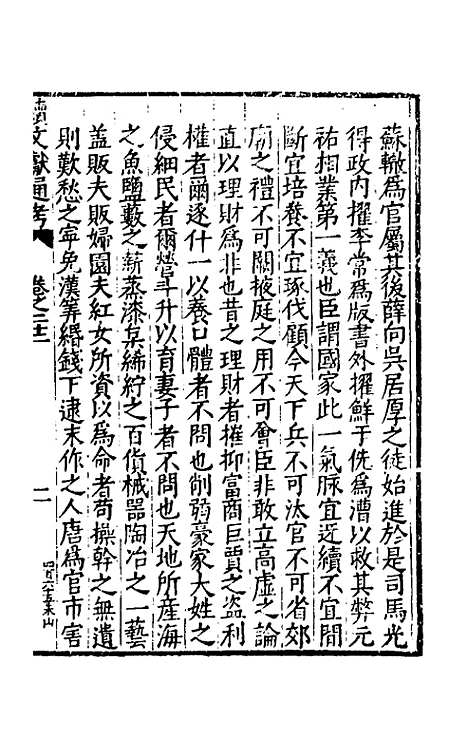 蘇轍為官屬其後薛向吳居厚之徒始進於是司馬光
得政内擢李常為版書外擢鮮于侁為漕以救其弊元
祐相業第一義也臣謂國家此一氣脉宜近續不宜間
斷宜培養不宜琢伐顧今天下兵不可汰官不可省郊
廟之禮不可闕掖庭之用不可會臣非敢立高虛之論
直以理財為非也昔之理財者摧抑富商巨賈之盜利
權者爾逐什一以養口體者不問也削弱豪家大姓之
侵細民者爾營斗升以育妻子者不問也天地所産海
之魚鹽藪之薪蒸漆枲絺紵之百貨械器陶冶之一藝
盖販夫販婦園夫紅女所資以為命者苟操幹之無遺
則歎愁之寧免漢筭緡錢下逮末作之人唐為官市害
文獻通考 卷之二十二 二